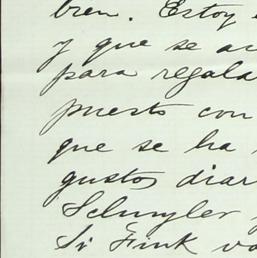 bien. Estoy
y que se
para regala
puesto con
que se ha
gustos diar
Schuyler
Si Fink va